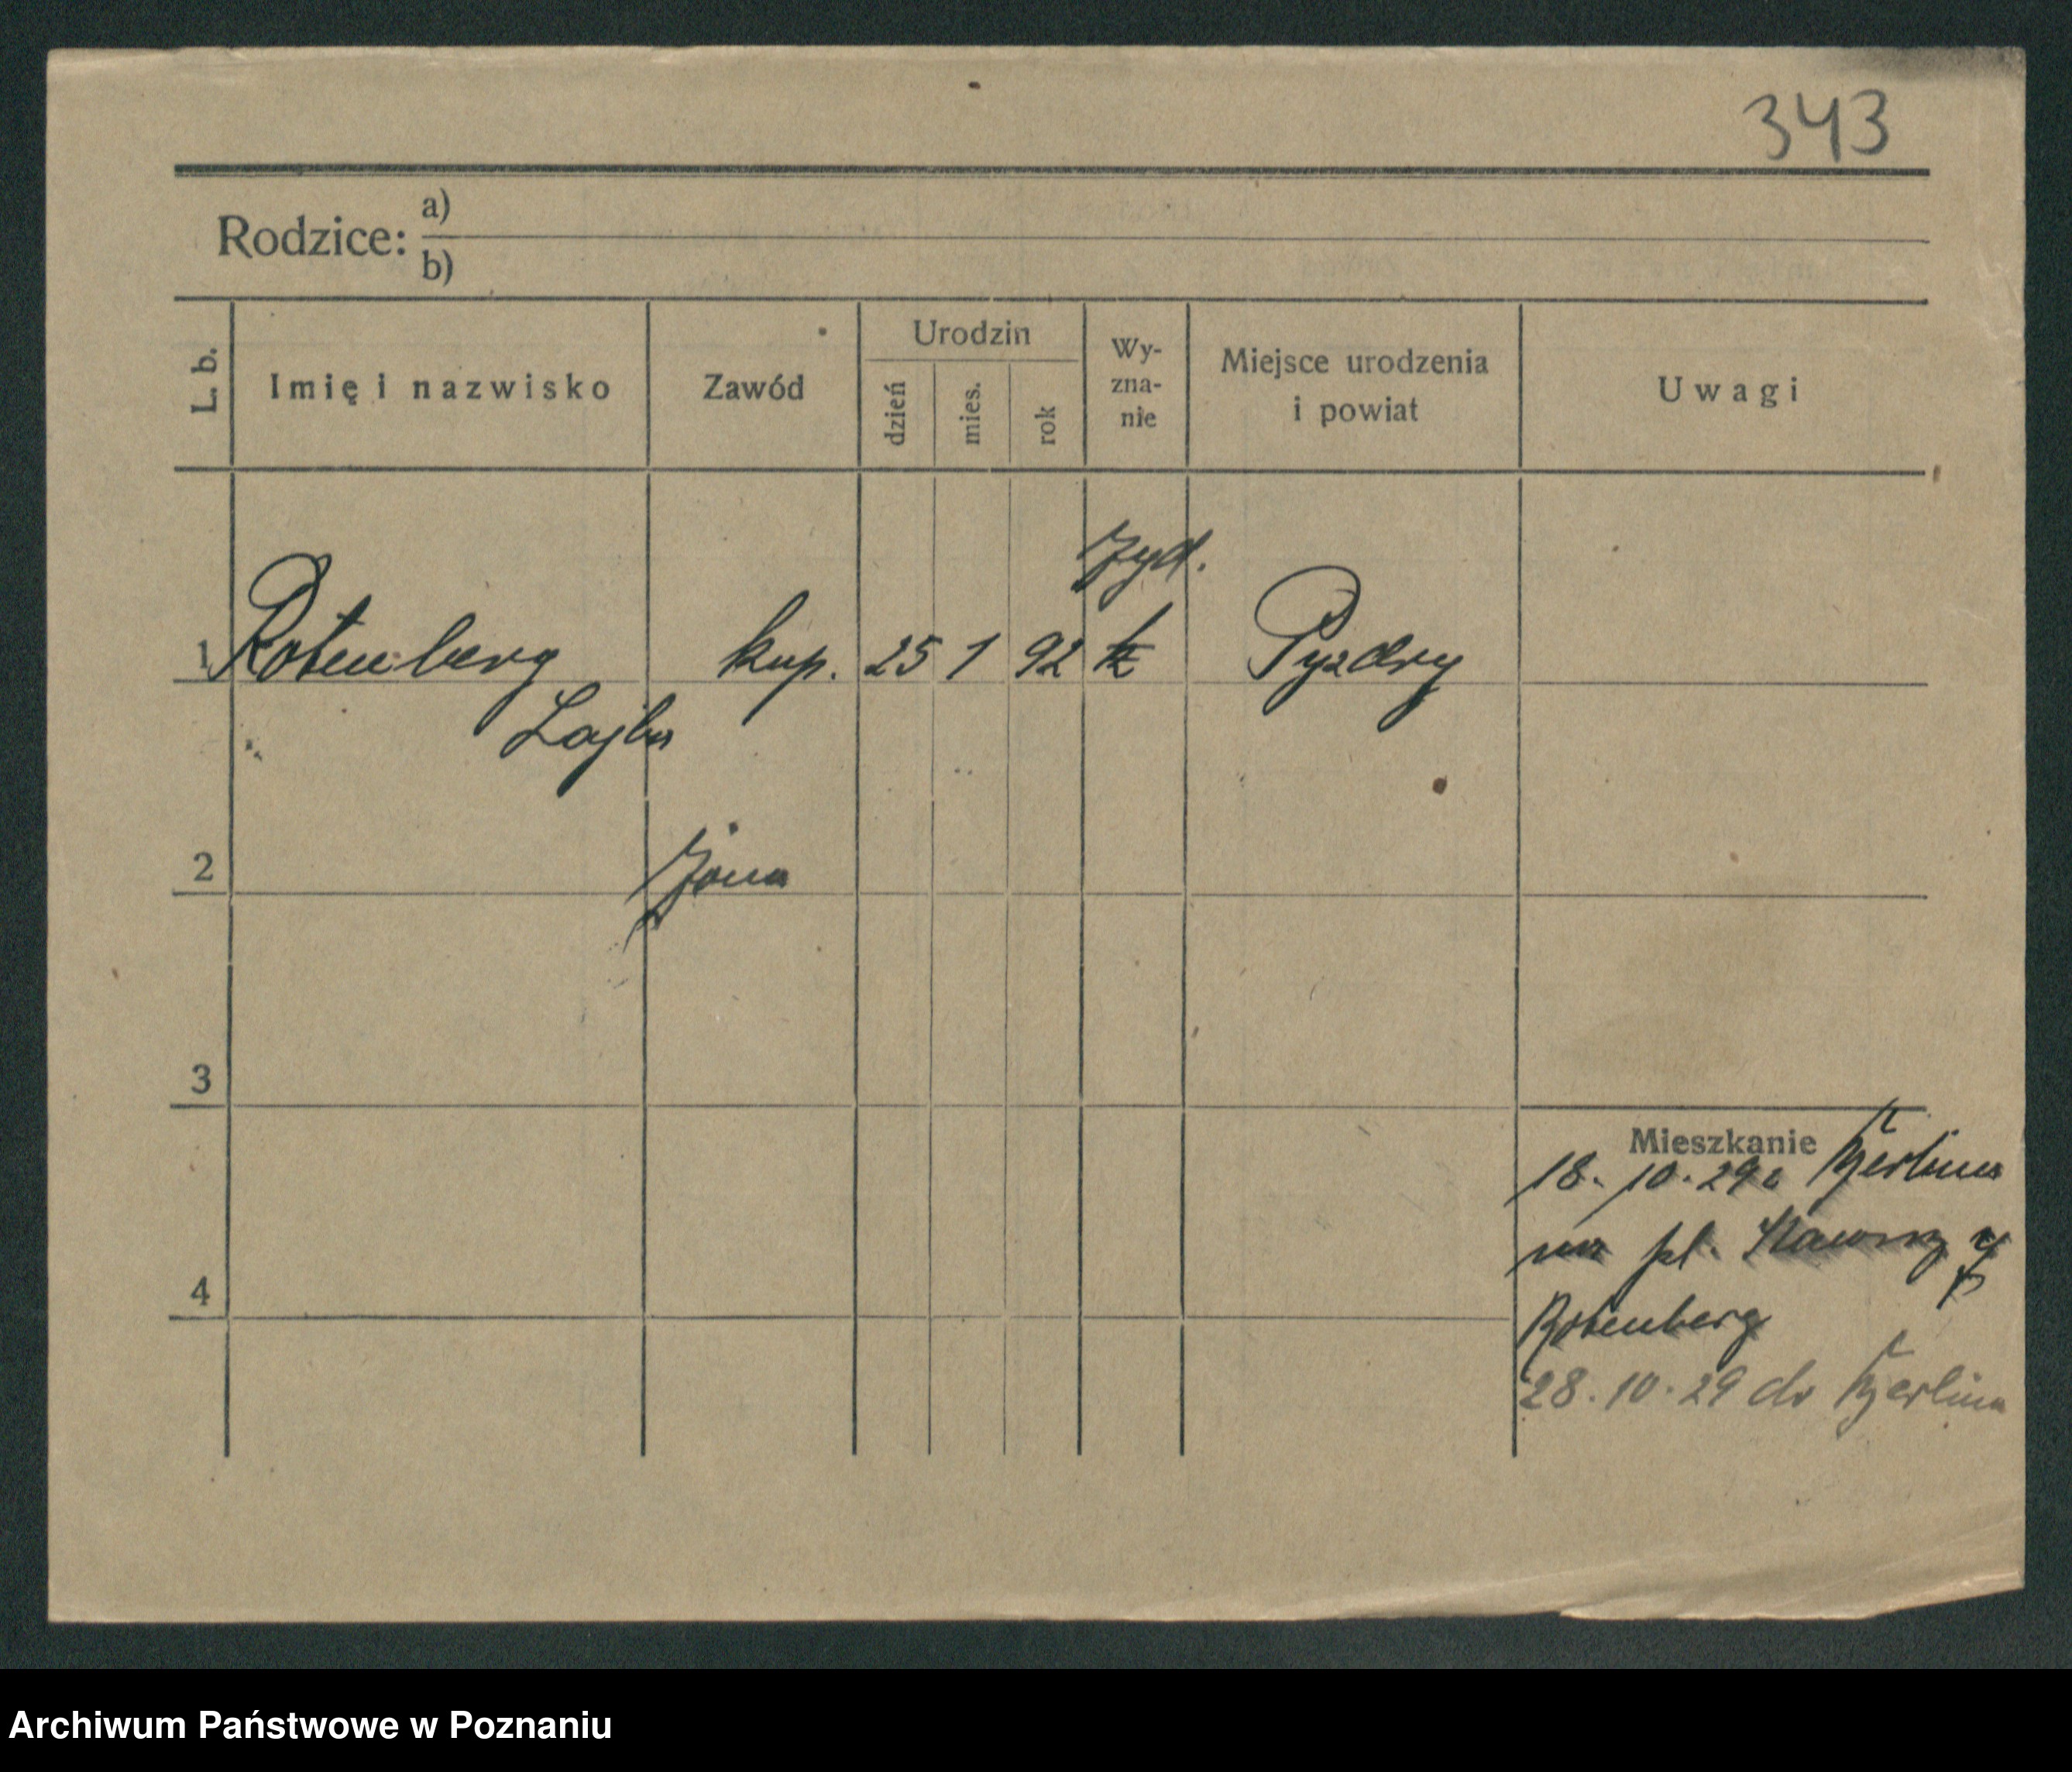 343
Rodzice: a)
b)
L. b. Imię i nazwisko Zawód Urodzin dzień mies. rok Wy-zna-nie Miejsce urodzenia i powiat Uwagi
żyd.
1 Rotenberg kup. 25 1 92 Pyzdry
Lajb
2 Jona
3
Mieszkanie
18. 10. 29 z Berlina
na pl.
4
Rotenberg
28. 10. 29 do Berlina
Archiwum Państwowe w Poznaniu